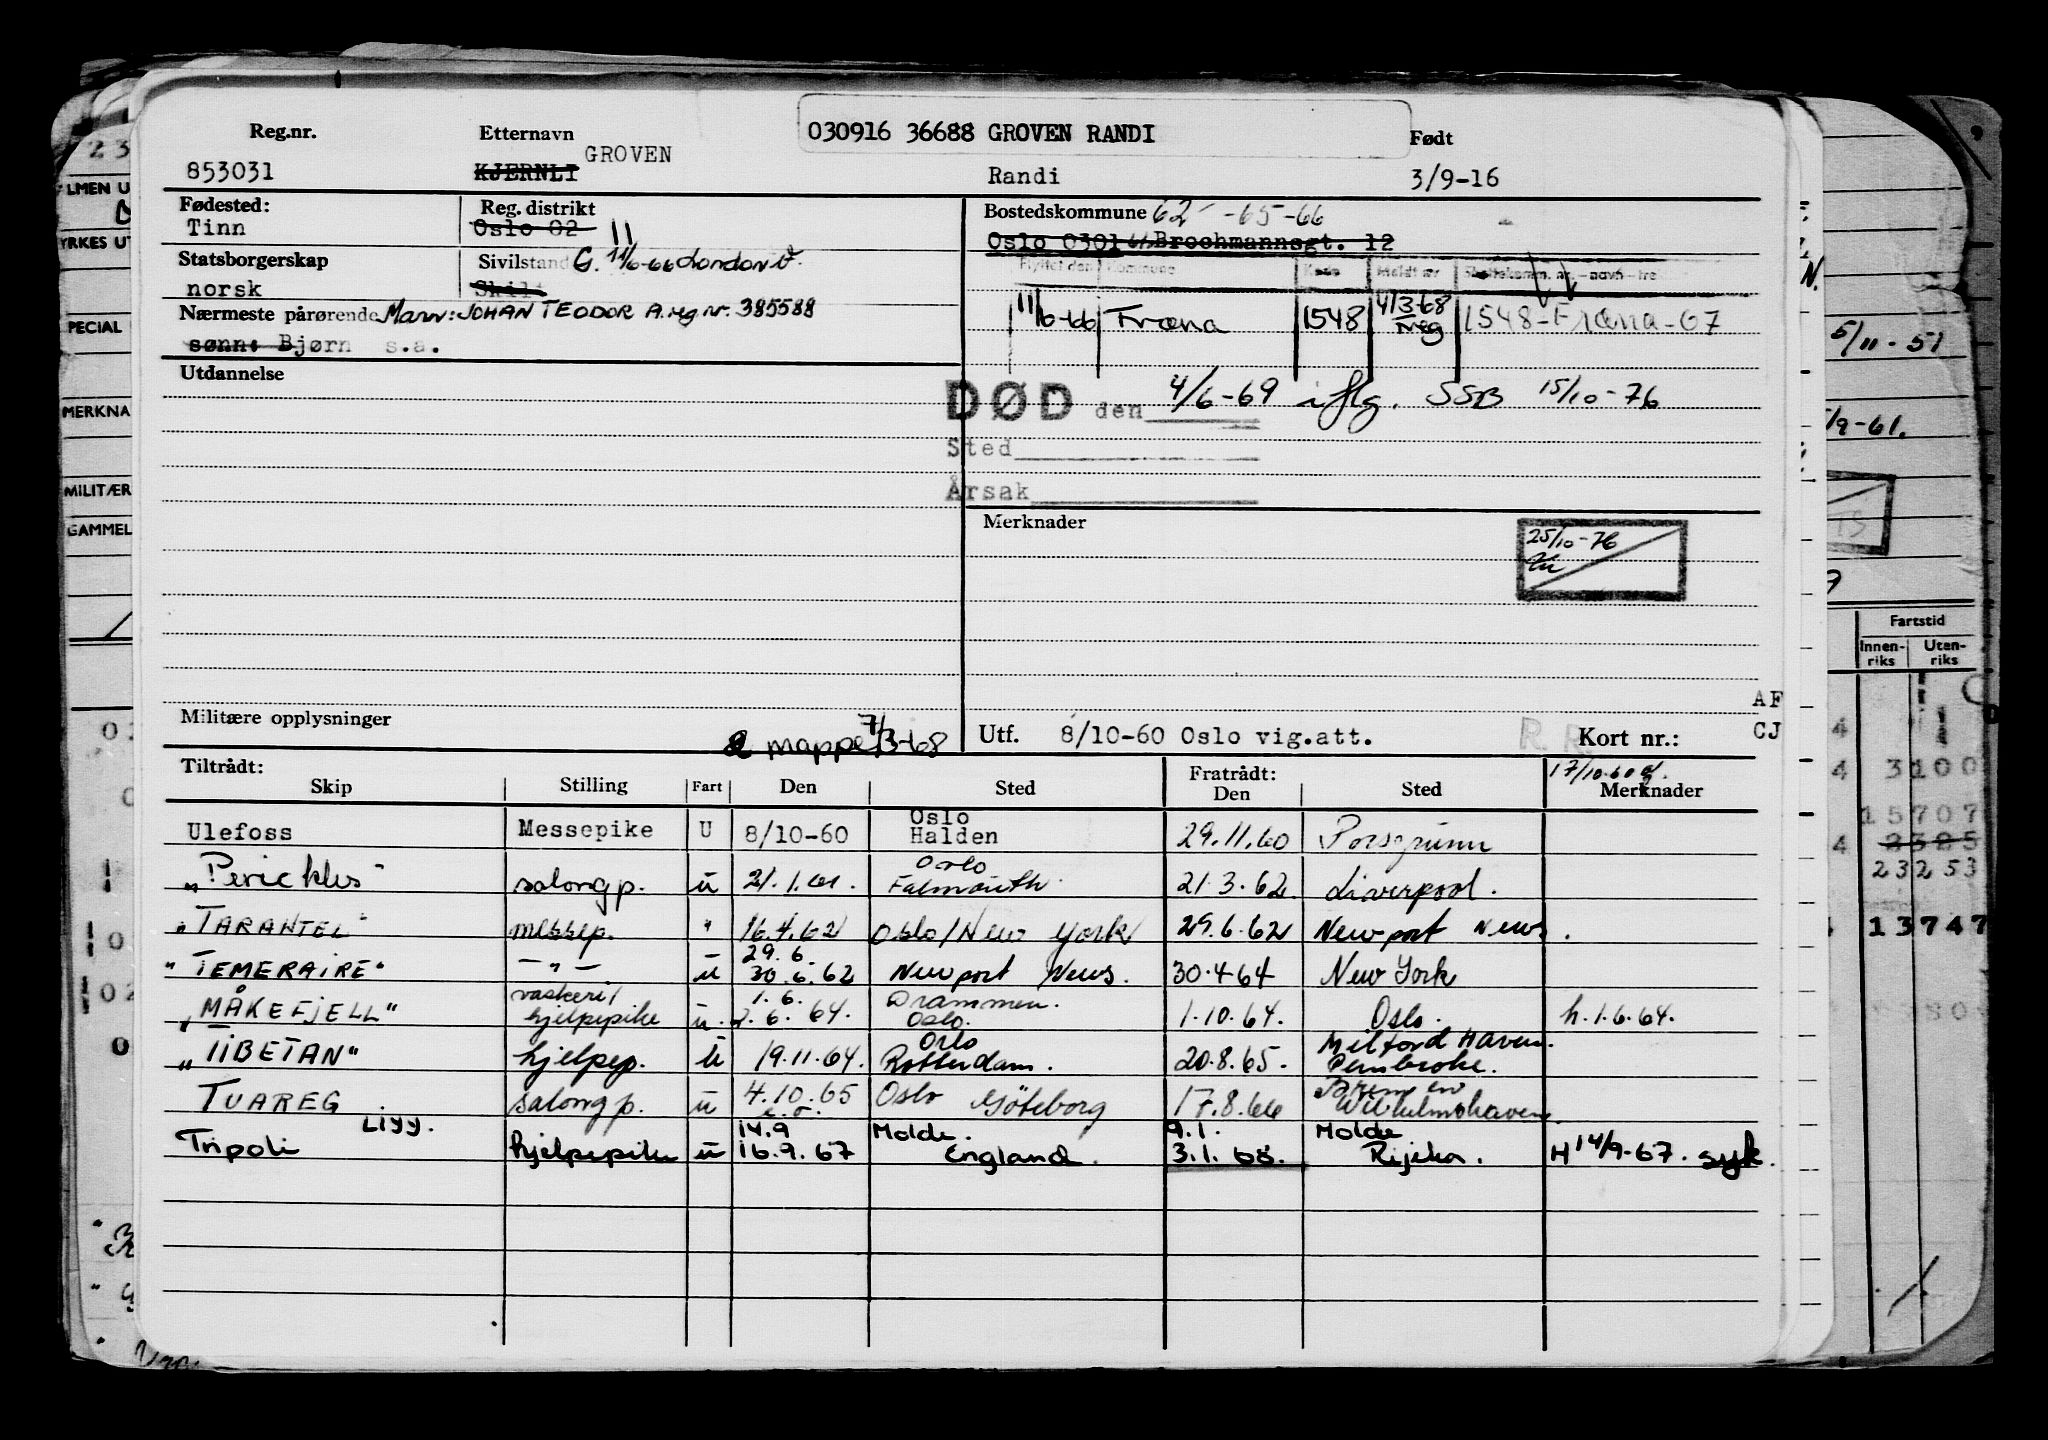 Reg.nr. Etternavn 030916 36688 GROVEN RANDI Født
853031 KJERNLI GROVEN Randi 3/9-16
Fødested: Reg. distrikt Bostedskommune 62 -65-66
Tinn Oslo 02 11 Oslo 0301 Brochmannsgt. 12
Statsborgerskap Sivilstand G. 11/6-66 London
norsk Skilt
Flyttet den Kommune Kode Meldt nr Skattekomm. nr. - navn - tre
Nærmeste pårørende Mann: JOHAN TEODOR A. reg nr. 385588
11/6-66 Fræna 1548 4/3-68 reg 1548-Fræna-67
sønn: Bjørn s.a.
Utdannelse
DØD den 4/6-69 iflg. SSB 15/10-76
Sted
Årsak
Merknader
25/10-76
AF
Militære opplysninger
mappe 7/3-68
Utf. 8/10-60 Oslo vig.att. R.R. Kort nr.: CJ
Tiltrådt: Fratrådt: 17/10.60
Skip Stilling Fart Den Sted Den Sted Merknader
Ulefoss Messepike U 8/10-60 Oslo Halden 29.11.60 Porsgrunn
"Perickles" salongp. u 21.1.61. Oslo Falmouth. 21.3.62. Liverpool.
"TARANTEL" messep. " 16.4.62 Oslo/New York 29.6.62 Newport News.
"TEMERAIRE" - " - u 29.6. 30.6.62 Newport News. 30.4.64 New York
"MÅKEFJELL" vaskeri/ hjelpepike u. 1.6. 2.6.64. Drammen. Oslo. 1.10.64. Oslo. h.1.6.64.
"TIBETAN" hjelpep. u 19.11.64. Oslo Rotterdam. 20.8.65. Milford Haven. Pembroke.
TUAREG salongp. u 4.10.65 Oslo Göteborg 17.8.66 Bremen Wilhelmshaven
LIYY.
Tripoli hjelpepike u 14.9 16.9.67 Molde. England. 9.1. 3.1.68. Molde Rijeka. H 14/9-67. syk.
LMEN U
YRKES UT
PECIAL
MERKNA
MILITÆR
GAMMEL
5/11-51
/9-61.
Fartstid
Innen-riks Uten-riks
3100
15707
2385
23253
13747